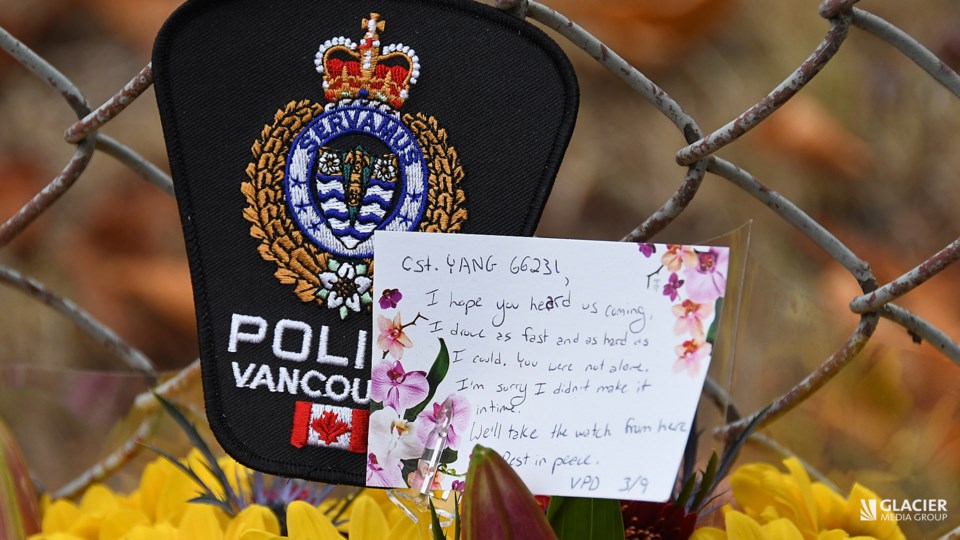 SERVAMUS
POLI
VANCOU
Cst. YANG 66231,
I hope you heard us coming,
I drove as fast and as hard as
I could. You were not alone.
I'm sorry I didn't make it
in time.
We'll take the watch from here
Rest in peace.
VPD 3/9
GLACIER
MEDIA GROUP